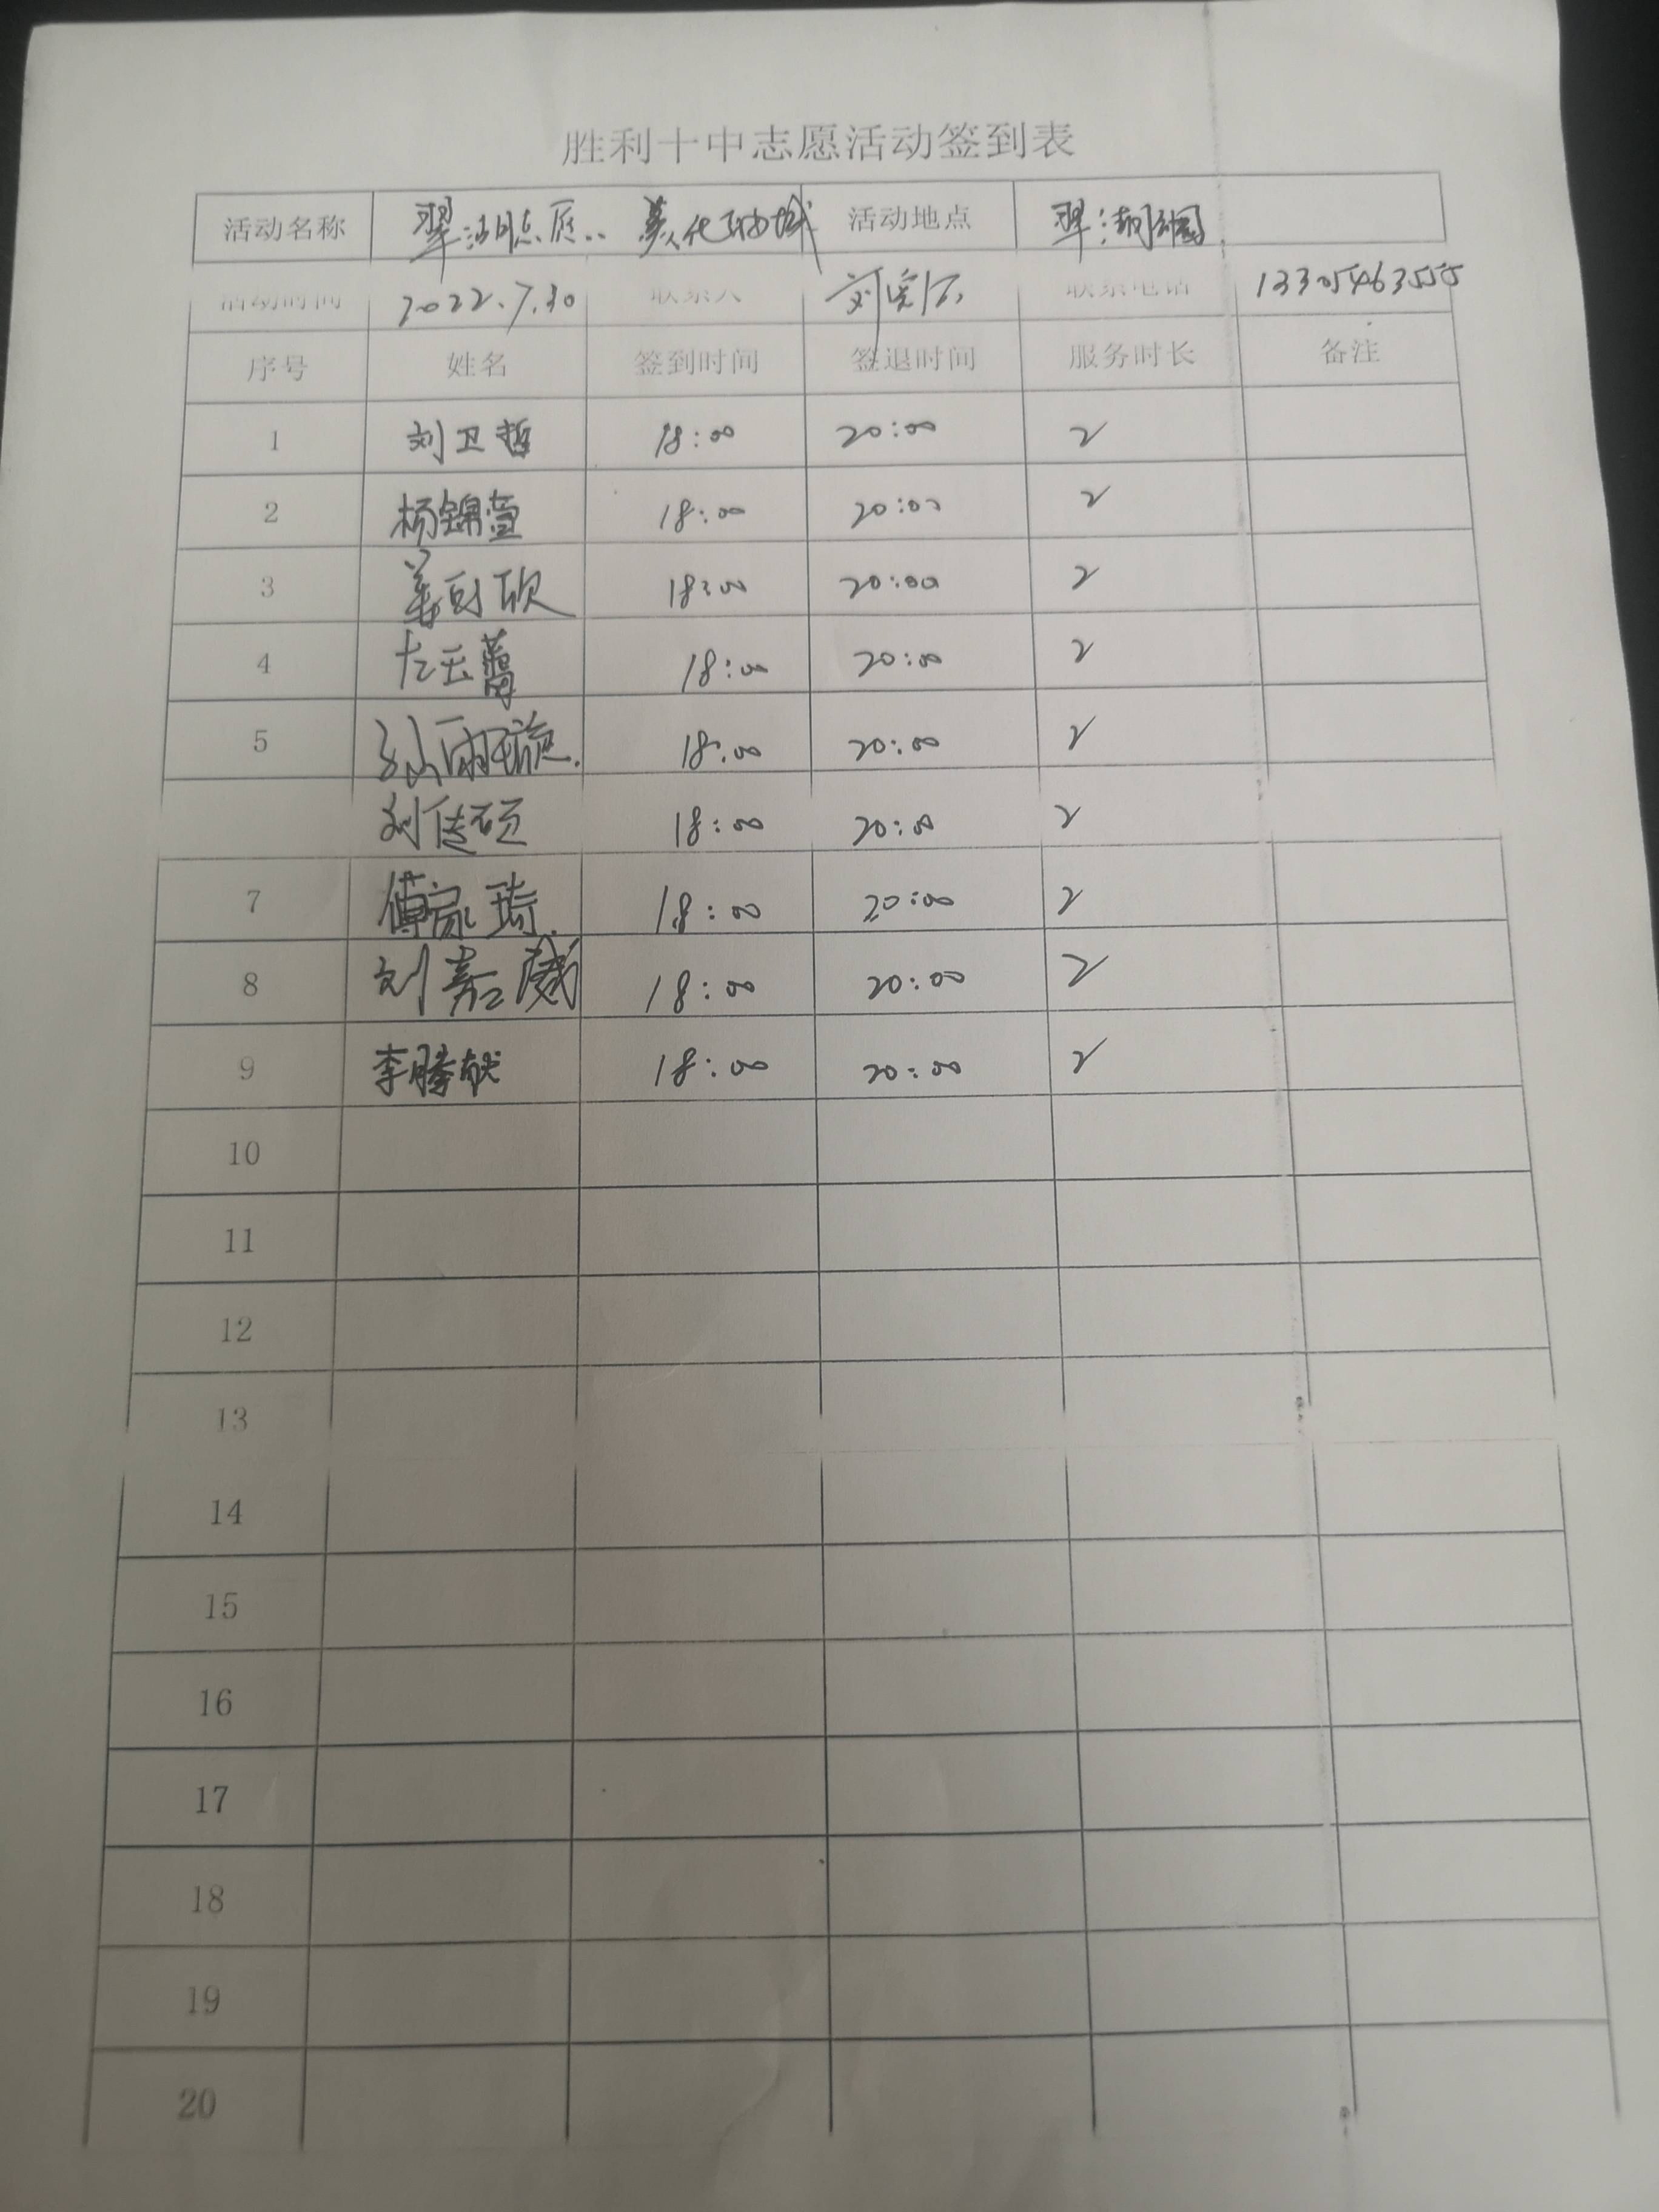 胜利十中志愿活动签到表
活动名称 翠湖 美化油城 活动地点 翠湖园
活动时间 2022.7.30 联系人 刘 联系电话 13305463555
序号 姓名 签到时间 签退时间 服务时长 备注
1 刘卫哲 18:00 20:00 2
2 杨锦萱 18:00 20:00 2
3 姜 欣 18:00 20:00 2
4 左玉 18:00 20:00 2
5 孙雨璇 18:00 20:00 2
刘传硕 18:00 20:00 2
7 傅家琦 18:00 20:00 2
8 刘嘉葳 18:00 20:00 2
9 李腾 18:00 20:00 2
10
11
12
13
14
15
16
17
18
19
20